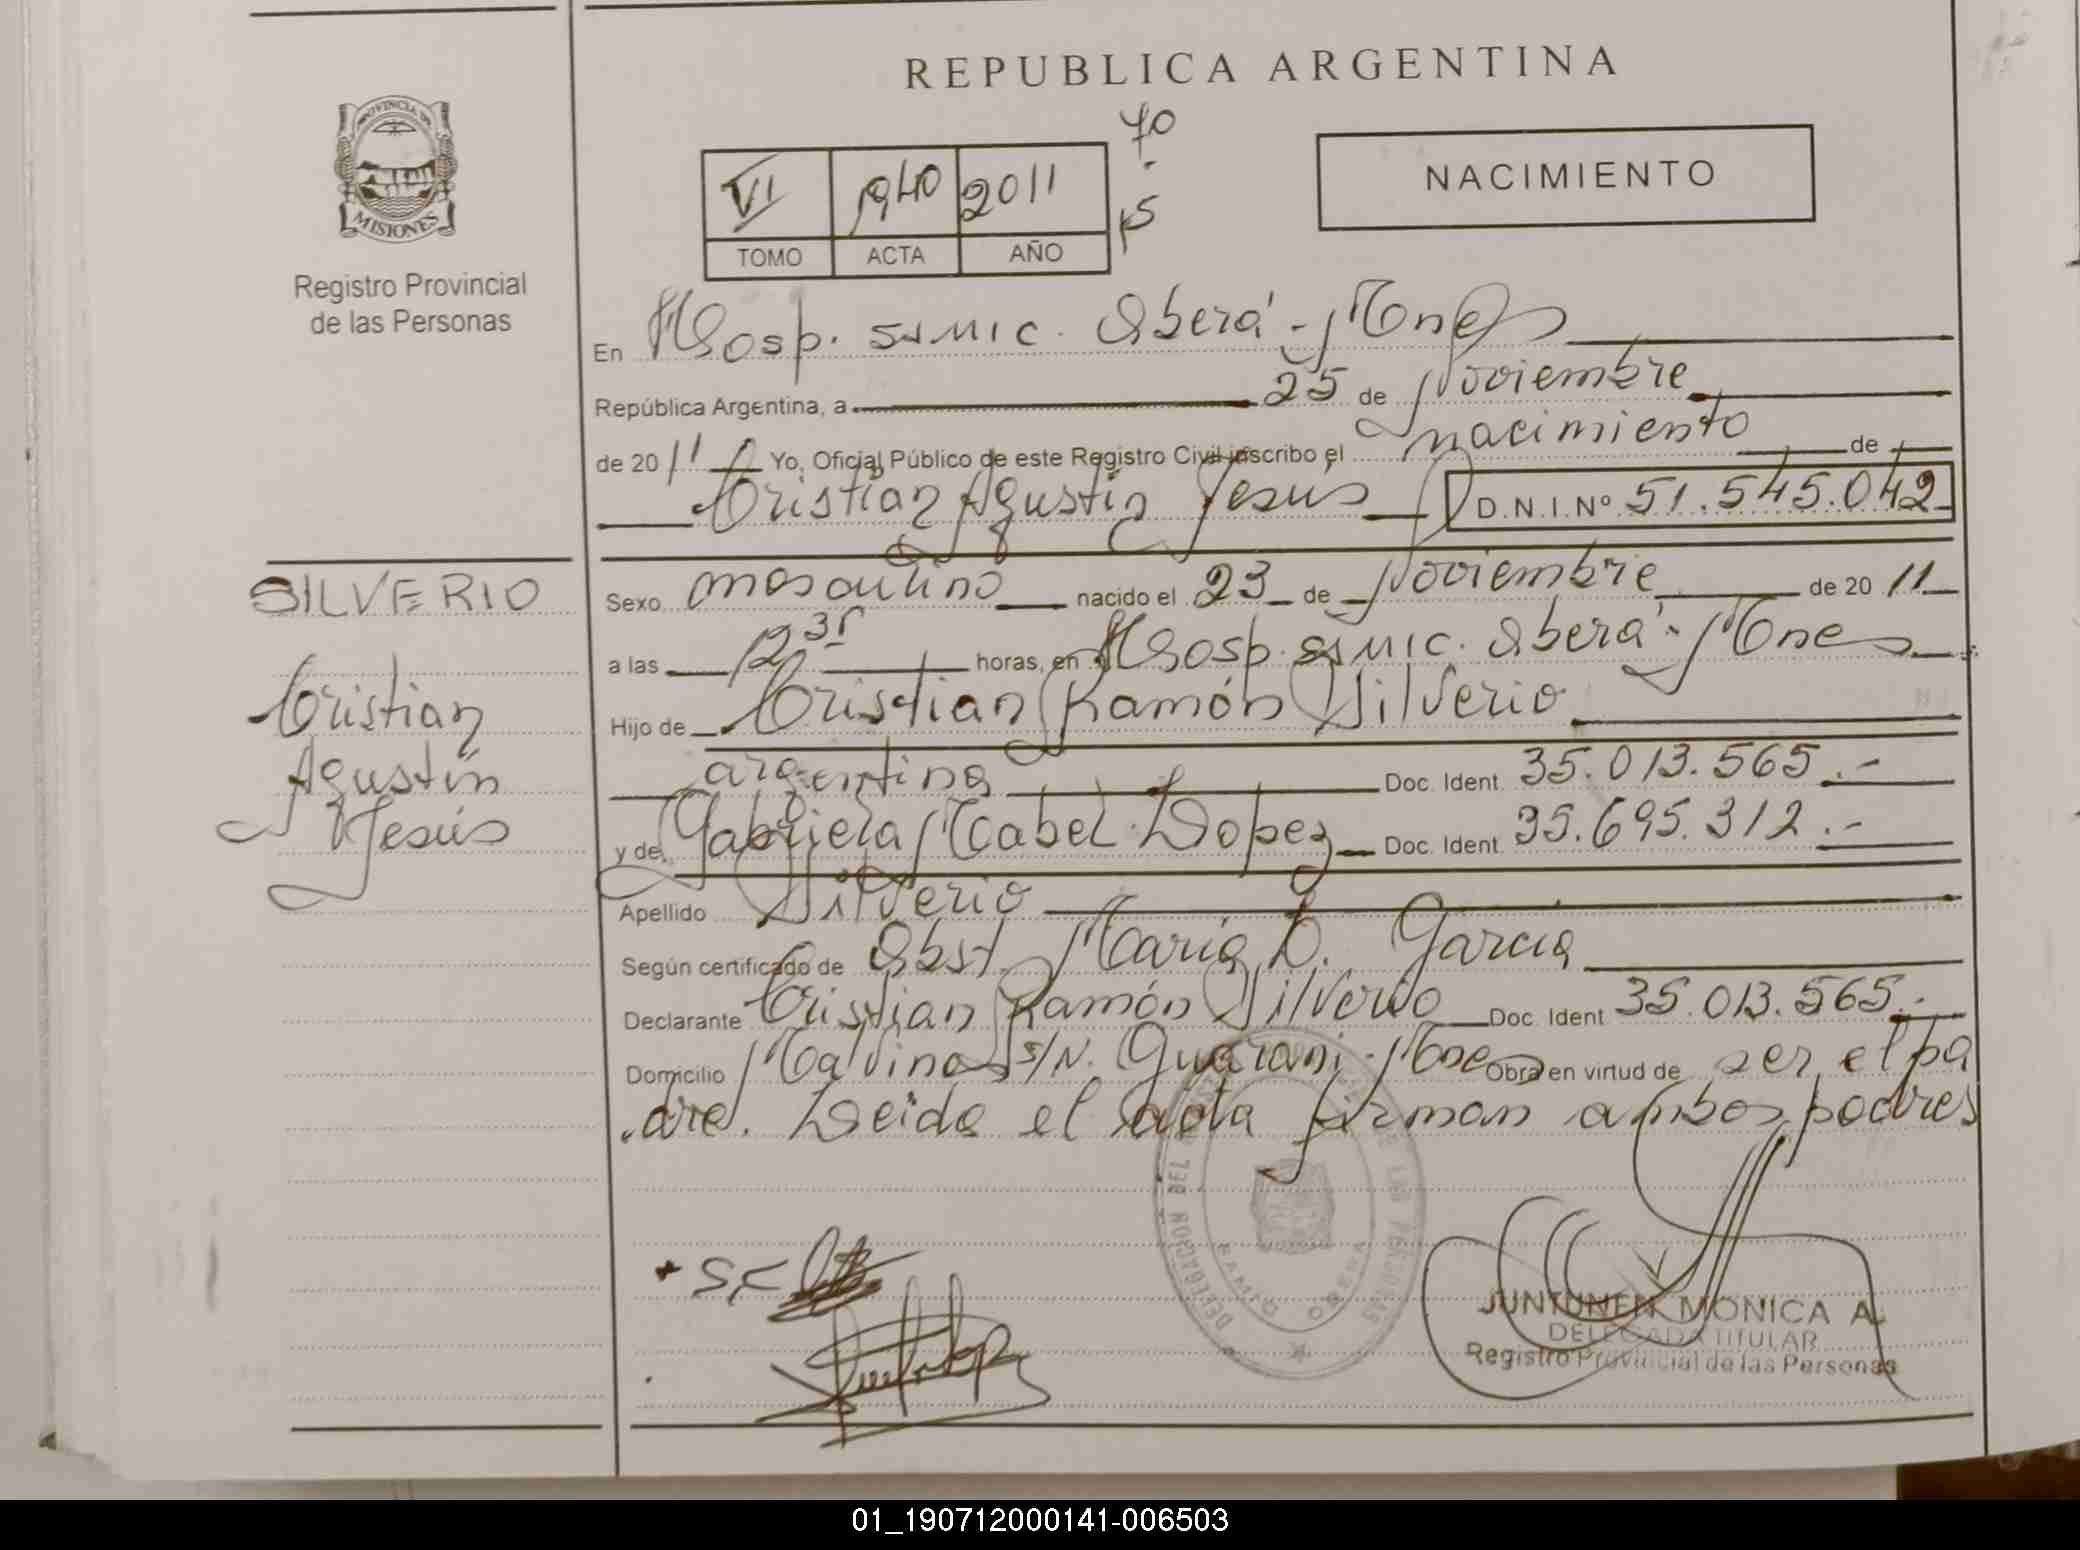 REPUBLICA ARGENTINA
PROVINCIA DE
MISIONES
Registro Provincial
de las Personas
VI 1940 2011
TOMO ACTA AÑO
NACIMIENTO
En Hosp. SAMIC. Oberá - Mnes
República Argentina, a 25 de Noviembre
de 2011 Yo, Oficial Público de este Registro Civil inscribo el nacimiento de
Cristian Agustín Jesús D.N.I. Nº 51.545.042
Sexo masculino nacido el 23 de Noviembre de 2011
a las 12 35 horas, en Hosp. SAMIC. Oberá - Mnes
Hijo de Cristian Ramón Silverio
argentina Doc. Ident. 35.013.565.-
y de Gabriela Mabel Lopez Doc. Ident. 35.695.312.-
Apellido Silverio
Según certificado de Obst. María D. García
Declarante Cristian Ramón Silverio Doc. Ident 35.013.565.-
Domicilio Malvinas S/N. Guaraní - Mnes Obra en virtud de ser el pa
dre. Leida el acta firman ambos padres
SILVERIO
Cristian
Agustín
Jesús
JUNTUNEN MONICA A.
DELEGADA TITULAR
Registro Provincial de las Personas
01_190712000141-006503